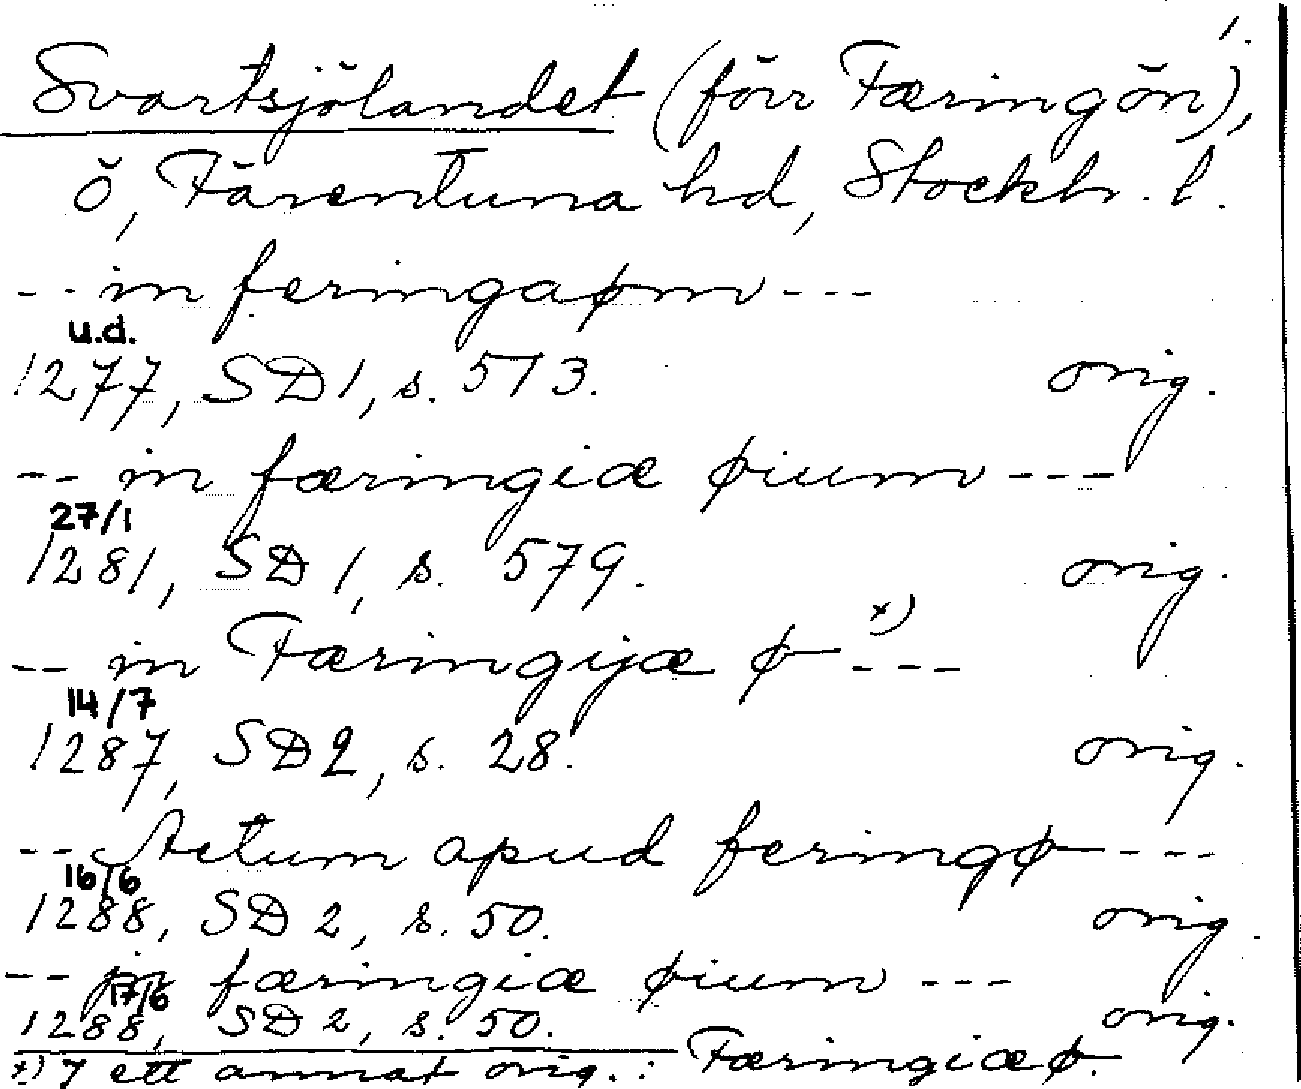 1.
Svartsjölandet (förr Færingön),
ö, Färentuna hd, Stockh. l.
-- in feringaøm ---
u.d.
1277, SD 1, s. 573. orig.
-- in færingiæ øium ---
27/1
1281, SD 1, s. 579. orig.
-- in Færingijæ ø x) ---
14/7
1287, SD 2, s. 28. orig.
-- Actum apud feringø ---
16/6
1288, SD 2, s. 50. orig.
-- in færingiæ øium ---
17/6
1288, SD 2, s. 50. orig.
x) I ett annat orig.: Færingiæø.